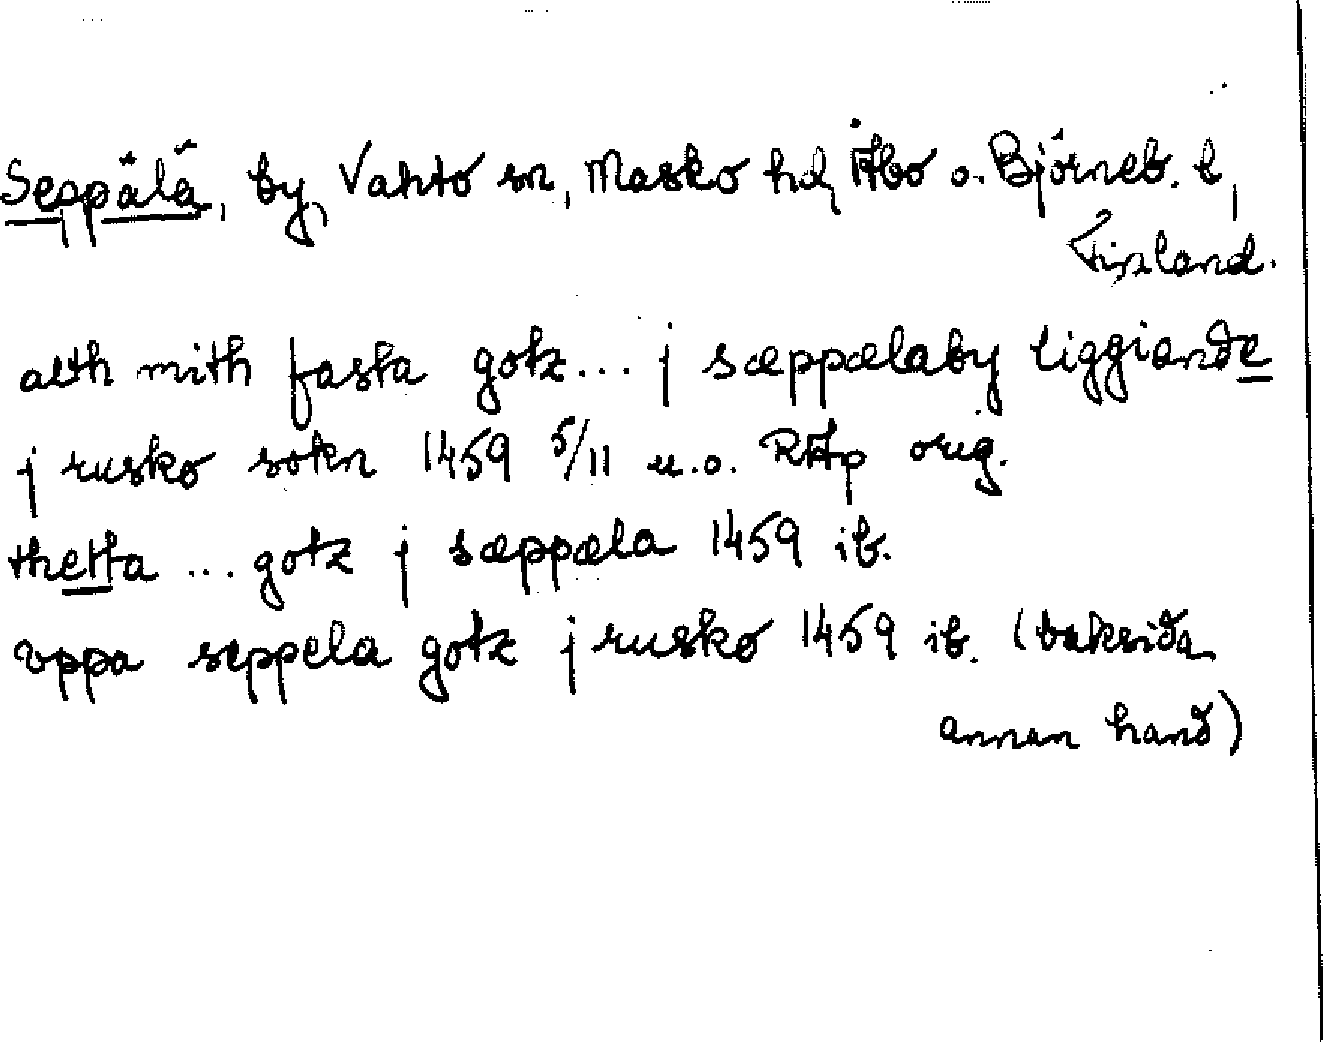 Seppälä, by, Vahto sn, Masko hd, Åbo o. Björneb. l,
Finland.
alth mith fasta gotz... j sæppælaby liggiande
j rusko sokn 1459 5/11 u.o. RAp orig.
thetta ... gotz j sæppæla 1459 ib.
vppa seppela gotz j rusko 1459 ib. (baksida
annan hand)